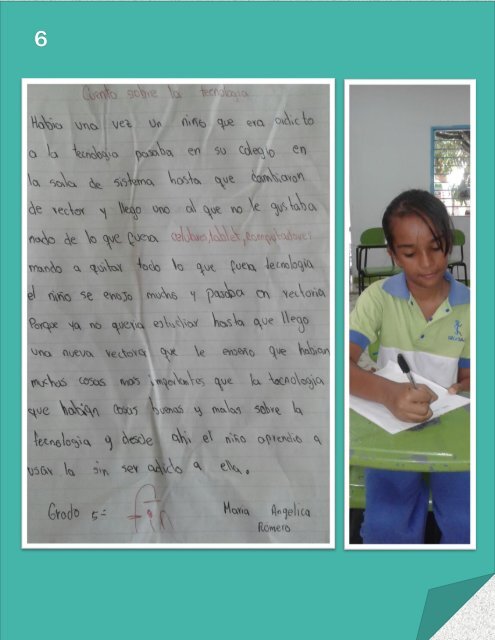 6
Cuento sobre la tecnologia
Habia una vez un niño que era adicto
a la tecnologia pasaba en su colegio en
la sala de sistema hasta que cambiaron
de rector y llego uno al que no le gustaba
nada de lo que fuera celulares, tablet, computadores
mando a quitar todo lo que fuera tecnologia
el niño se enojo mucho y pasaba en rectoria
Porque ya no queria estudiar hasta que llego
una nueva rectora que le enseño que habian
muchas cosas mas importantes que la tecnologia
que habian cosas buenas y malas sobre la
tecnologia y desde ahi el niño aprendio a
usar la sin ser adicto a ella.
Grado 5= fin Maria Angelica
Romero